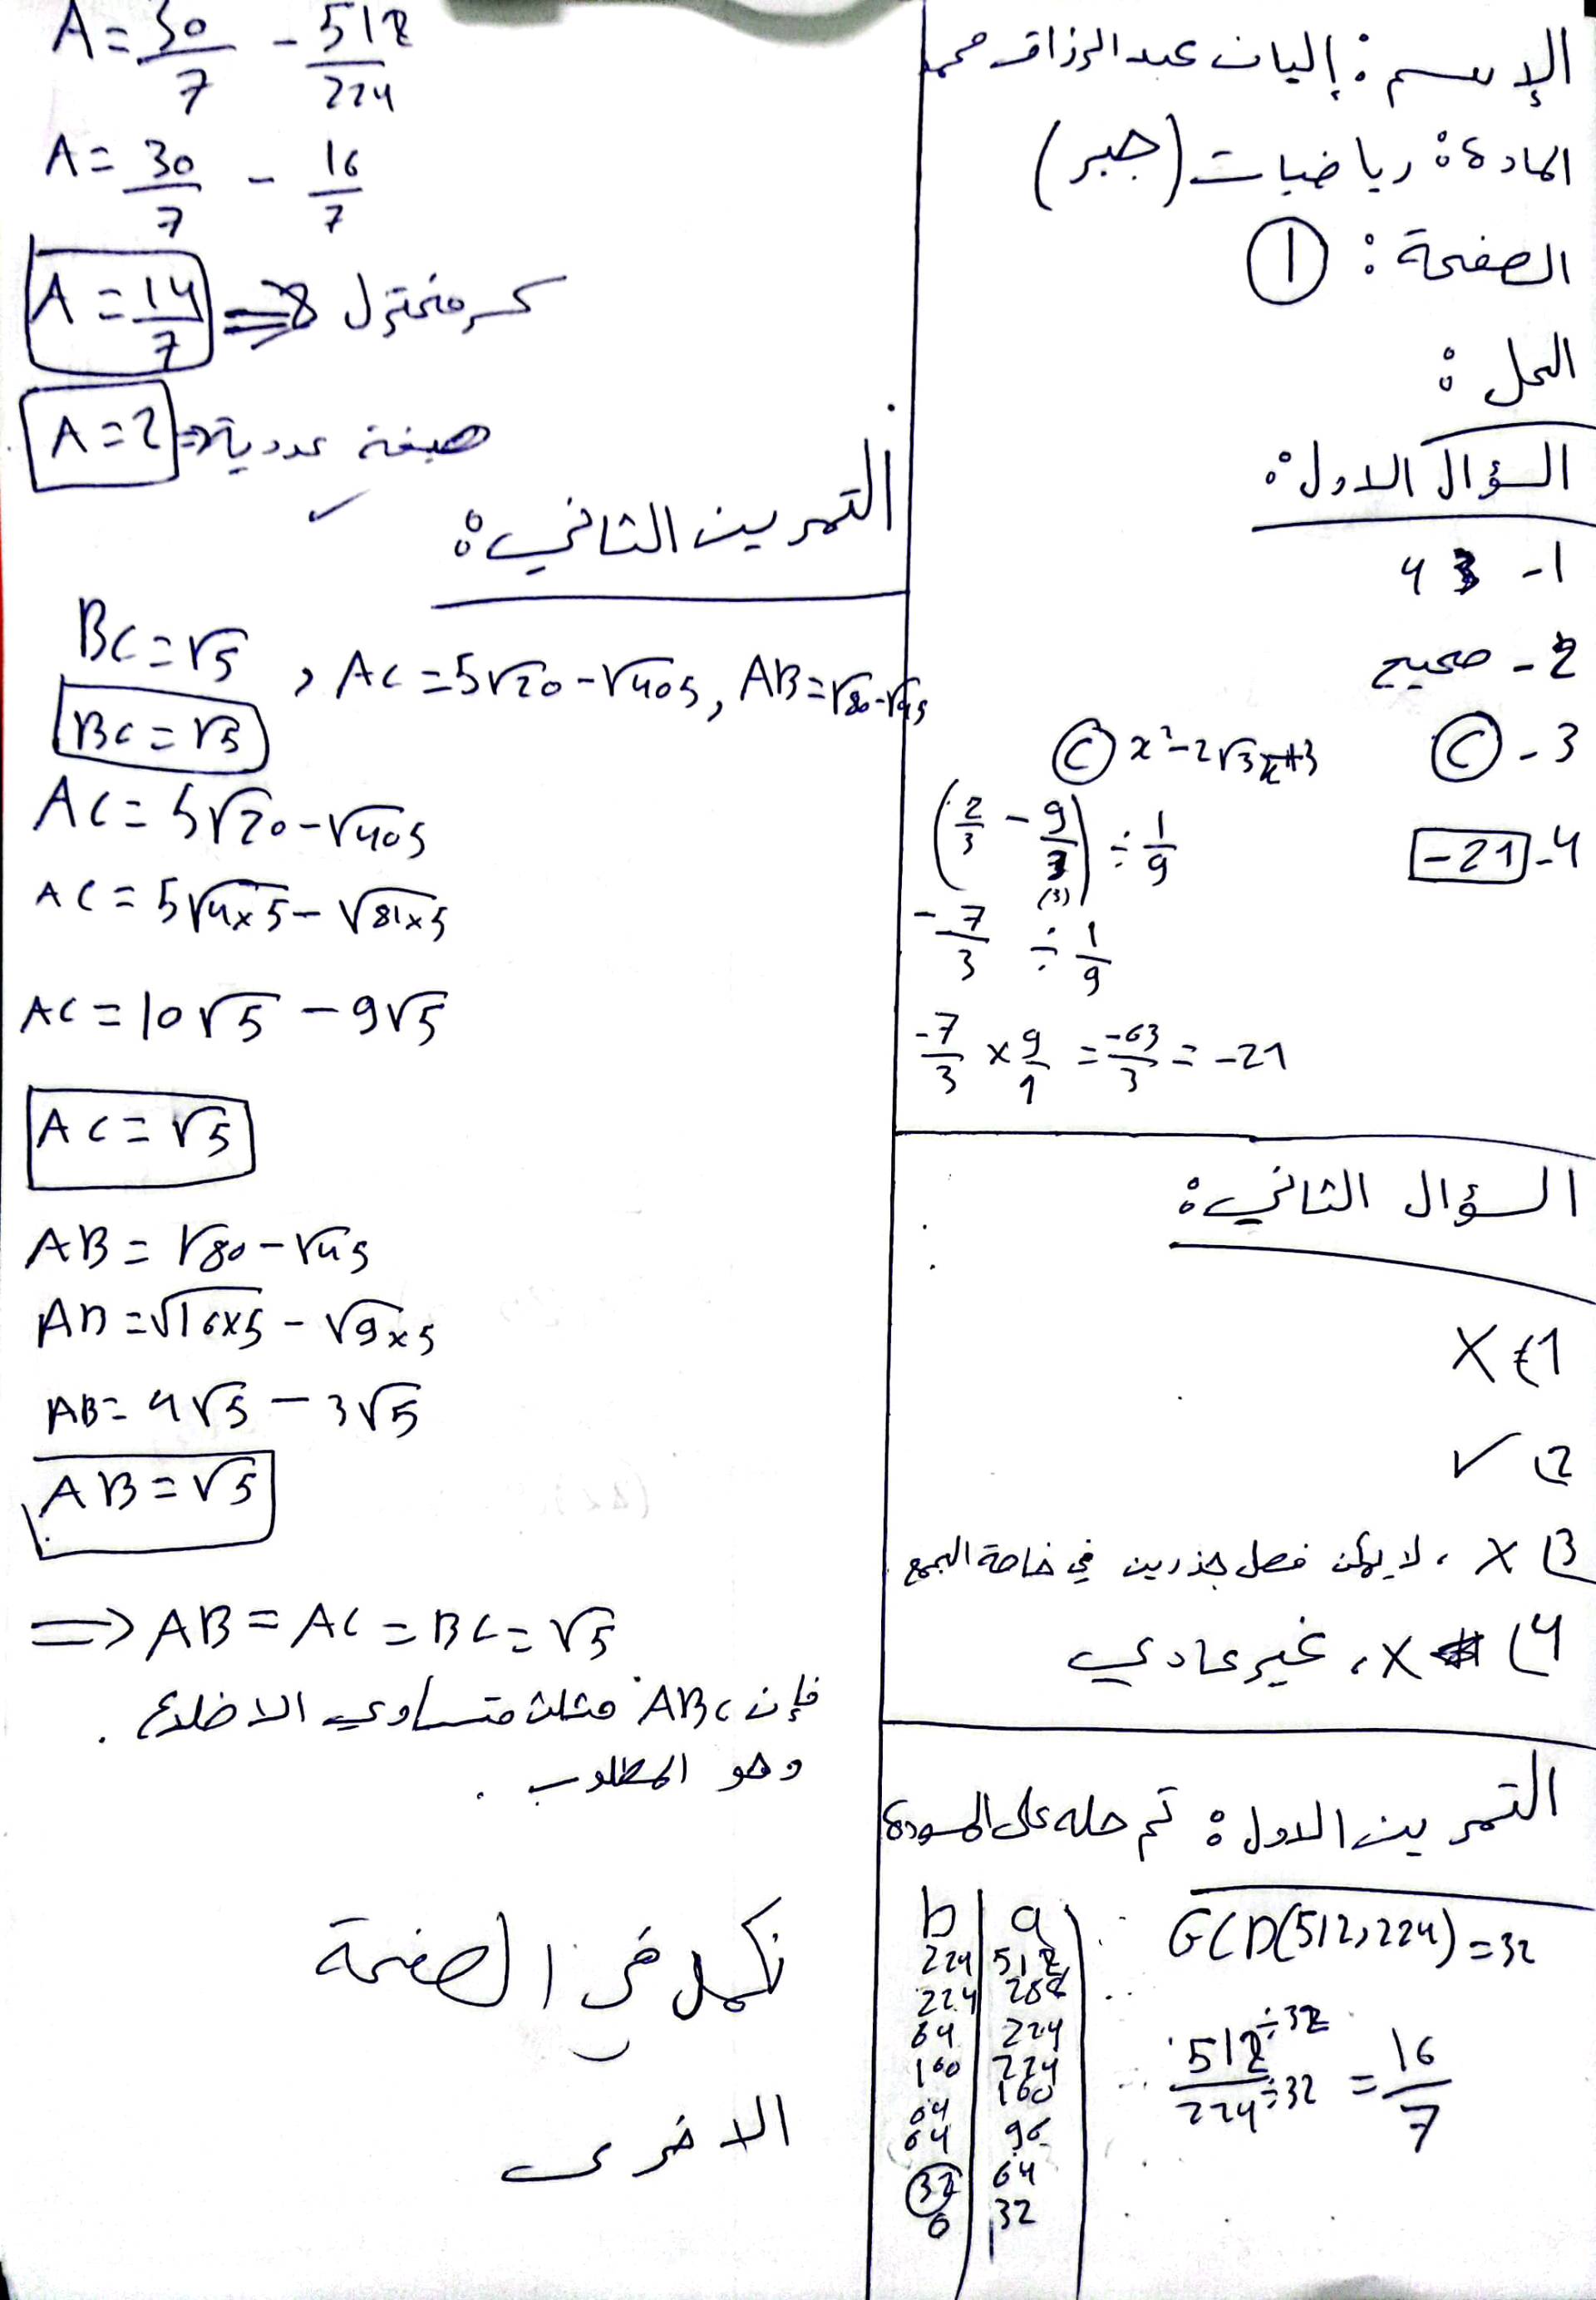 الإسم: إليان عبد الرزاق محمد
المادة: رياضيات (جبر)
الصفحة: ①
الحل:
السؤال الاول:
1- 43
2- صحيح
3- Ⓒ Ⓒ x²-2√3x+3
4- -21
(2/3 - 9/3) ÷ 1/9
(3)
-7/3 ÷ 1/9
-7/3 × 9/1 = -63/3 = -21
السؤال الثاني:
1) X
2) ✓
3) X ، لا يمكن فصل جذرين في خاصة الجمع
4) X ، غير عادي
التمرين الاول: تم حله على المسودة
GCD(512,224) = 32
512÷32 / 224÷32 = 16/7
b | a
224 | 512
224 | 288
64 | 224
160 | 224
64 | 160
64 | 96
32 | 64
0 | 32
A = 30/7 - 512/224
A = 30/7 - 16/7
A = 14/7 => كسر مختزل
A = 2 => صيغة عددية
✓
التمرين الثاني:
BC = √5 , AC = 5√20 - √405 , AB = √80 - √45
BC = √5
AC = 5√20 - √405
AC = 5√4×5 - √81×5
AC = 10√5 - 9√5
AC = √5
AB = √80 - √45
AB = √16×5 - √9×5
AB = 4√5 - 3√5
AB = √5
=> AB = AC = BC = √5
فإن ABC مثلث متساوي الاضلاع .
وهو المطلوب .
نكمل في الصفحة
الاخرى